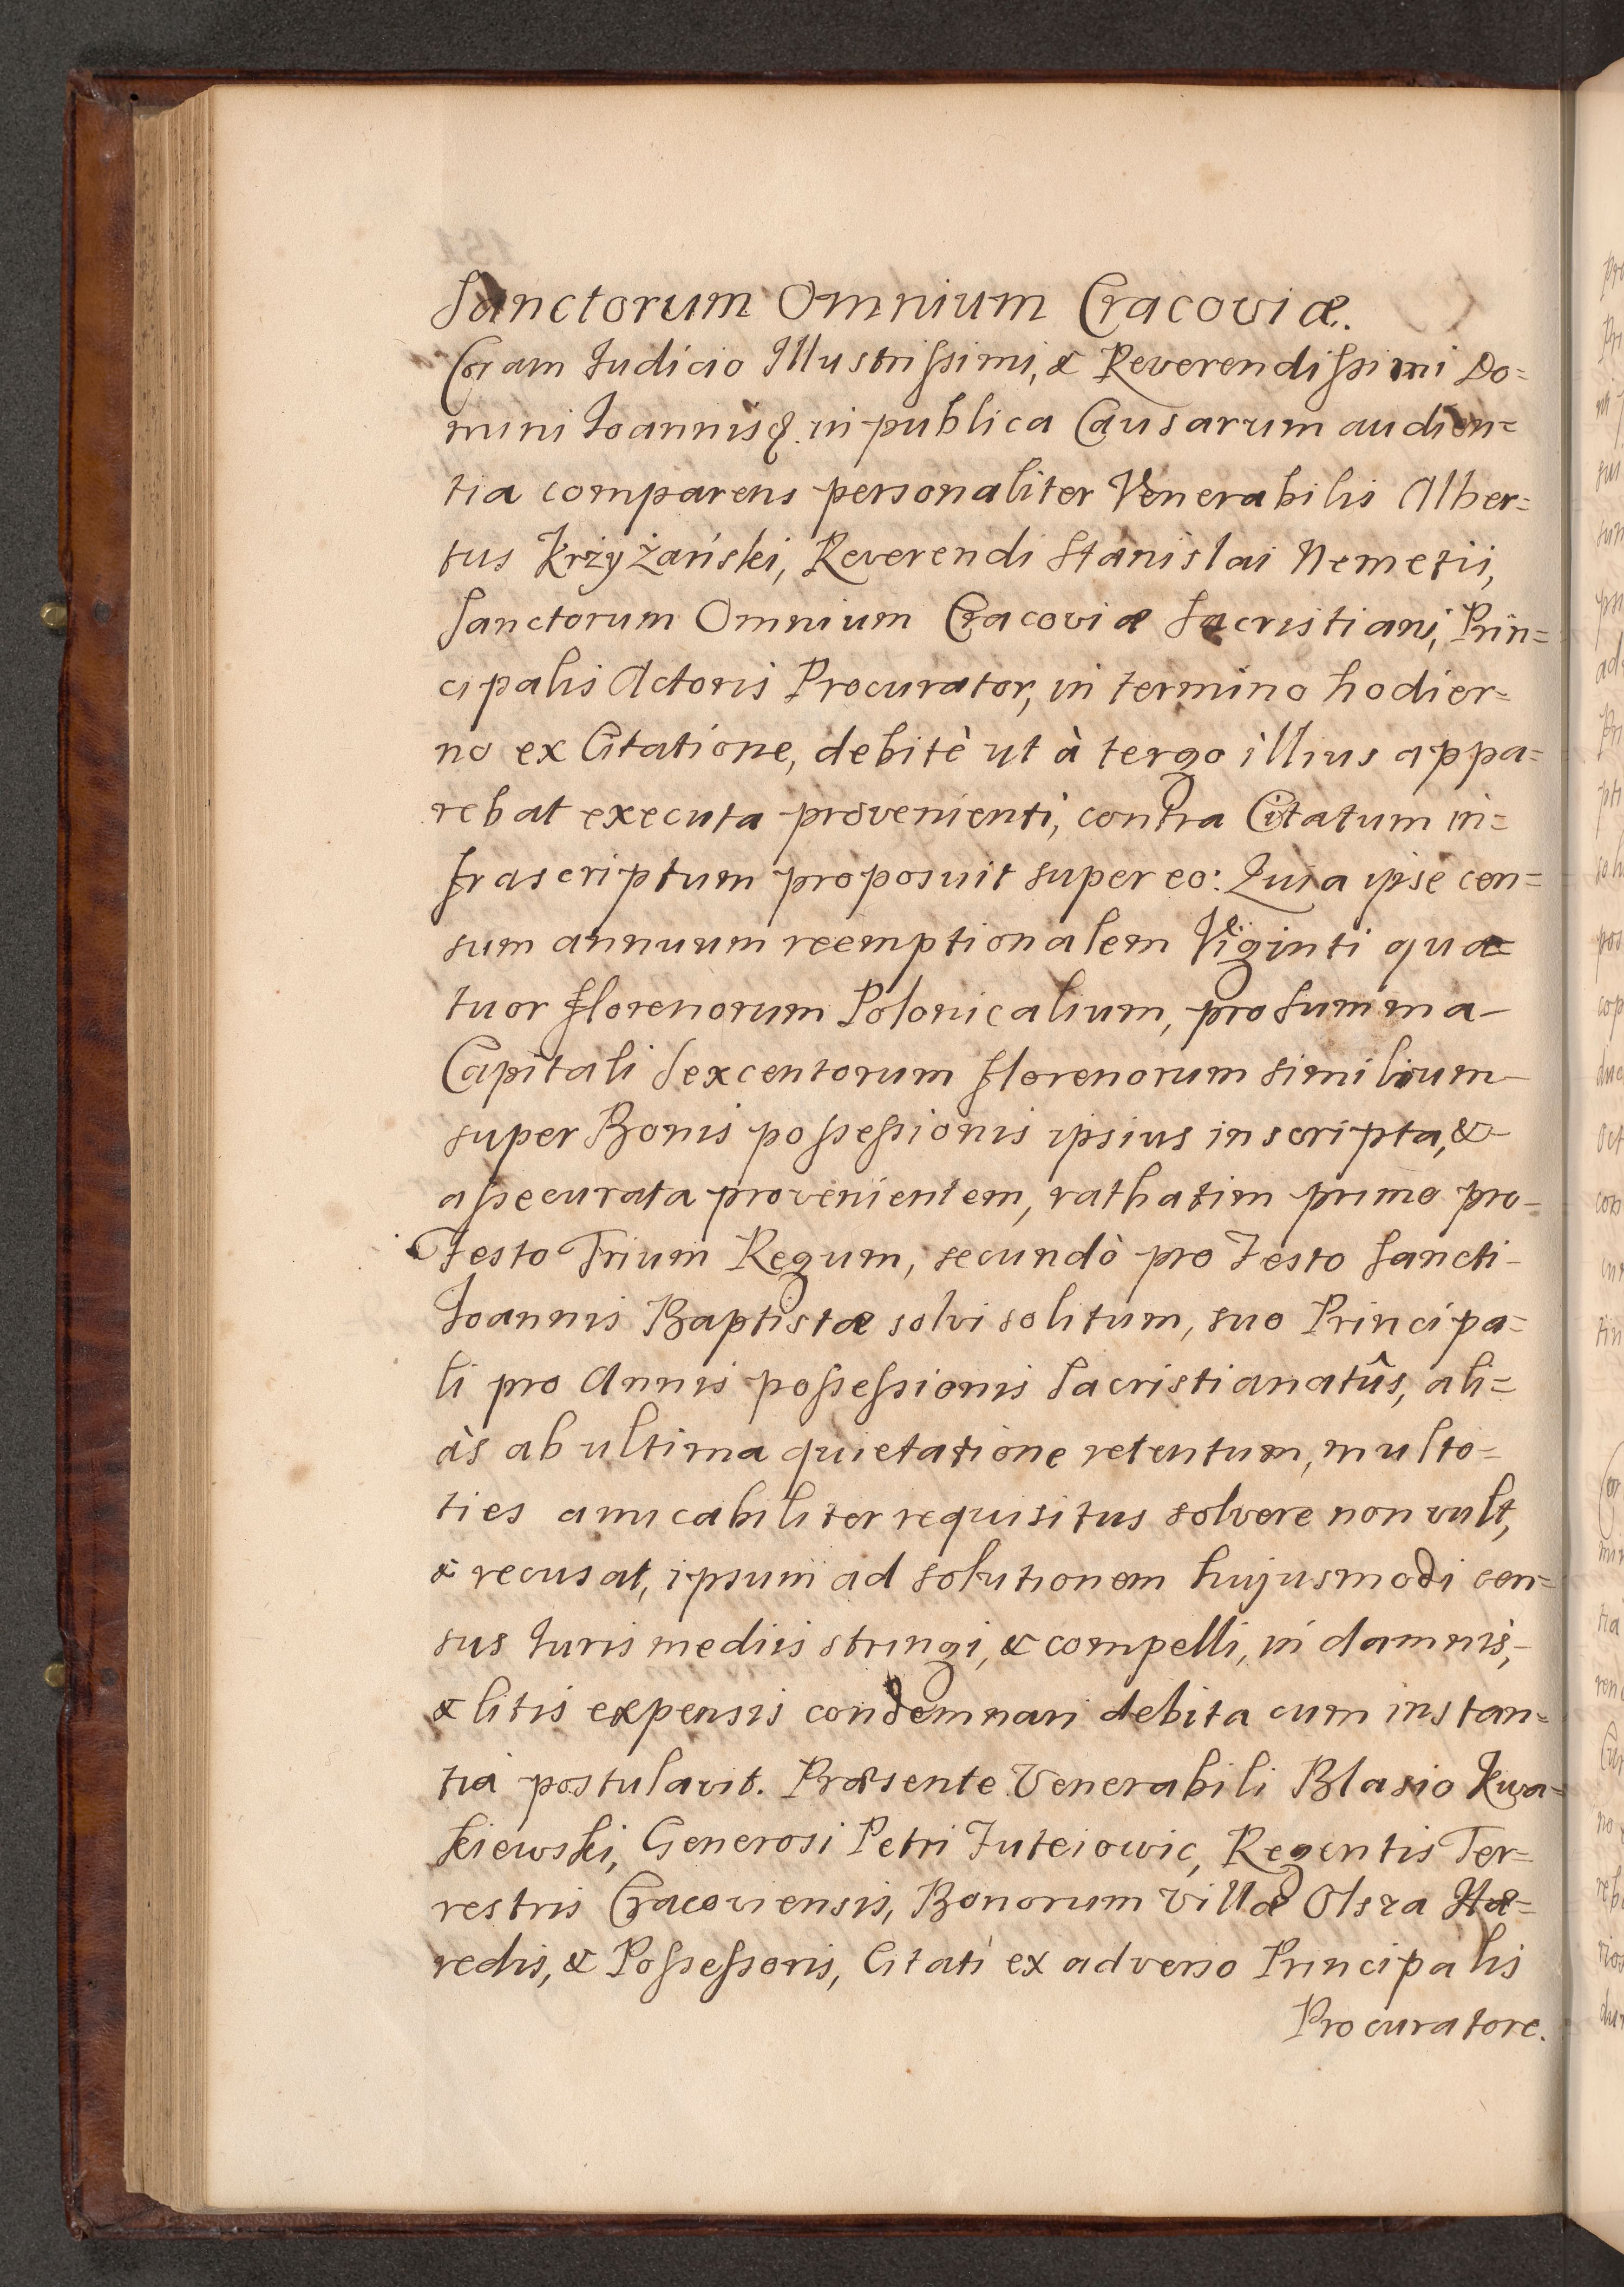 Sanctorum Omnium Cracoviæ.
Coram Iudicio Illustrissimi, & Reverendissimi Do=
mini Ioannis &. in publica Causarum audien=
tia comparens personaliter Venerabilis Alber=
tus Krzyżański, Reverendi Stanislai Nemetii,
Sanctorum Omnium Cracoviæ Sacristiani, Prin=
cipalis Actoris Procurator, in termino hodier=
no ex Citatione, debitè ut à tergo illius appa=
rebat executa provenienti, contra Citatum in=
frascriptum proposuit super eo: Quia ipse cen=
sum annuum reemptionalem Viginti qua=
tuor florenorum Polonicalium, pro summa
Capitali Sexcentorum florenorum similium
super Bonis possessionis ipsius inscripta, &
assecurata provenientem, rathatim primo pro
Festo Trium Regum, secundò pro Festo Sancti
Ioannis Baptistæ solvi solitum, suo Principa=
li pro Annis possessionis Sacristianatûs, ali=
às ab ultima quietatione retentum, multo=
ties amicabiliter requisitus solvere non vult,
& recusat, ipsum ad solutionem hujusmodi cen=
sus Iuris mediis stringi, & compelli, in damnis,
& litis expensis condemnari debita cum instan=
tia postulavit. Præsente Venerabili Blasio Kwa=
kiewski, Generosi Petri Futeiowic, Regentis Ter=
restris Cracoviensis, Bonorum Villæ Olsza Hæ=
redis, & Possessoris, Citati ex adverso Principalis
Procuratore.